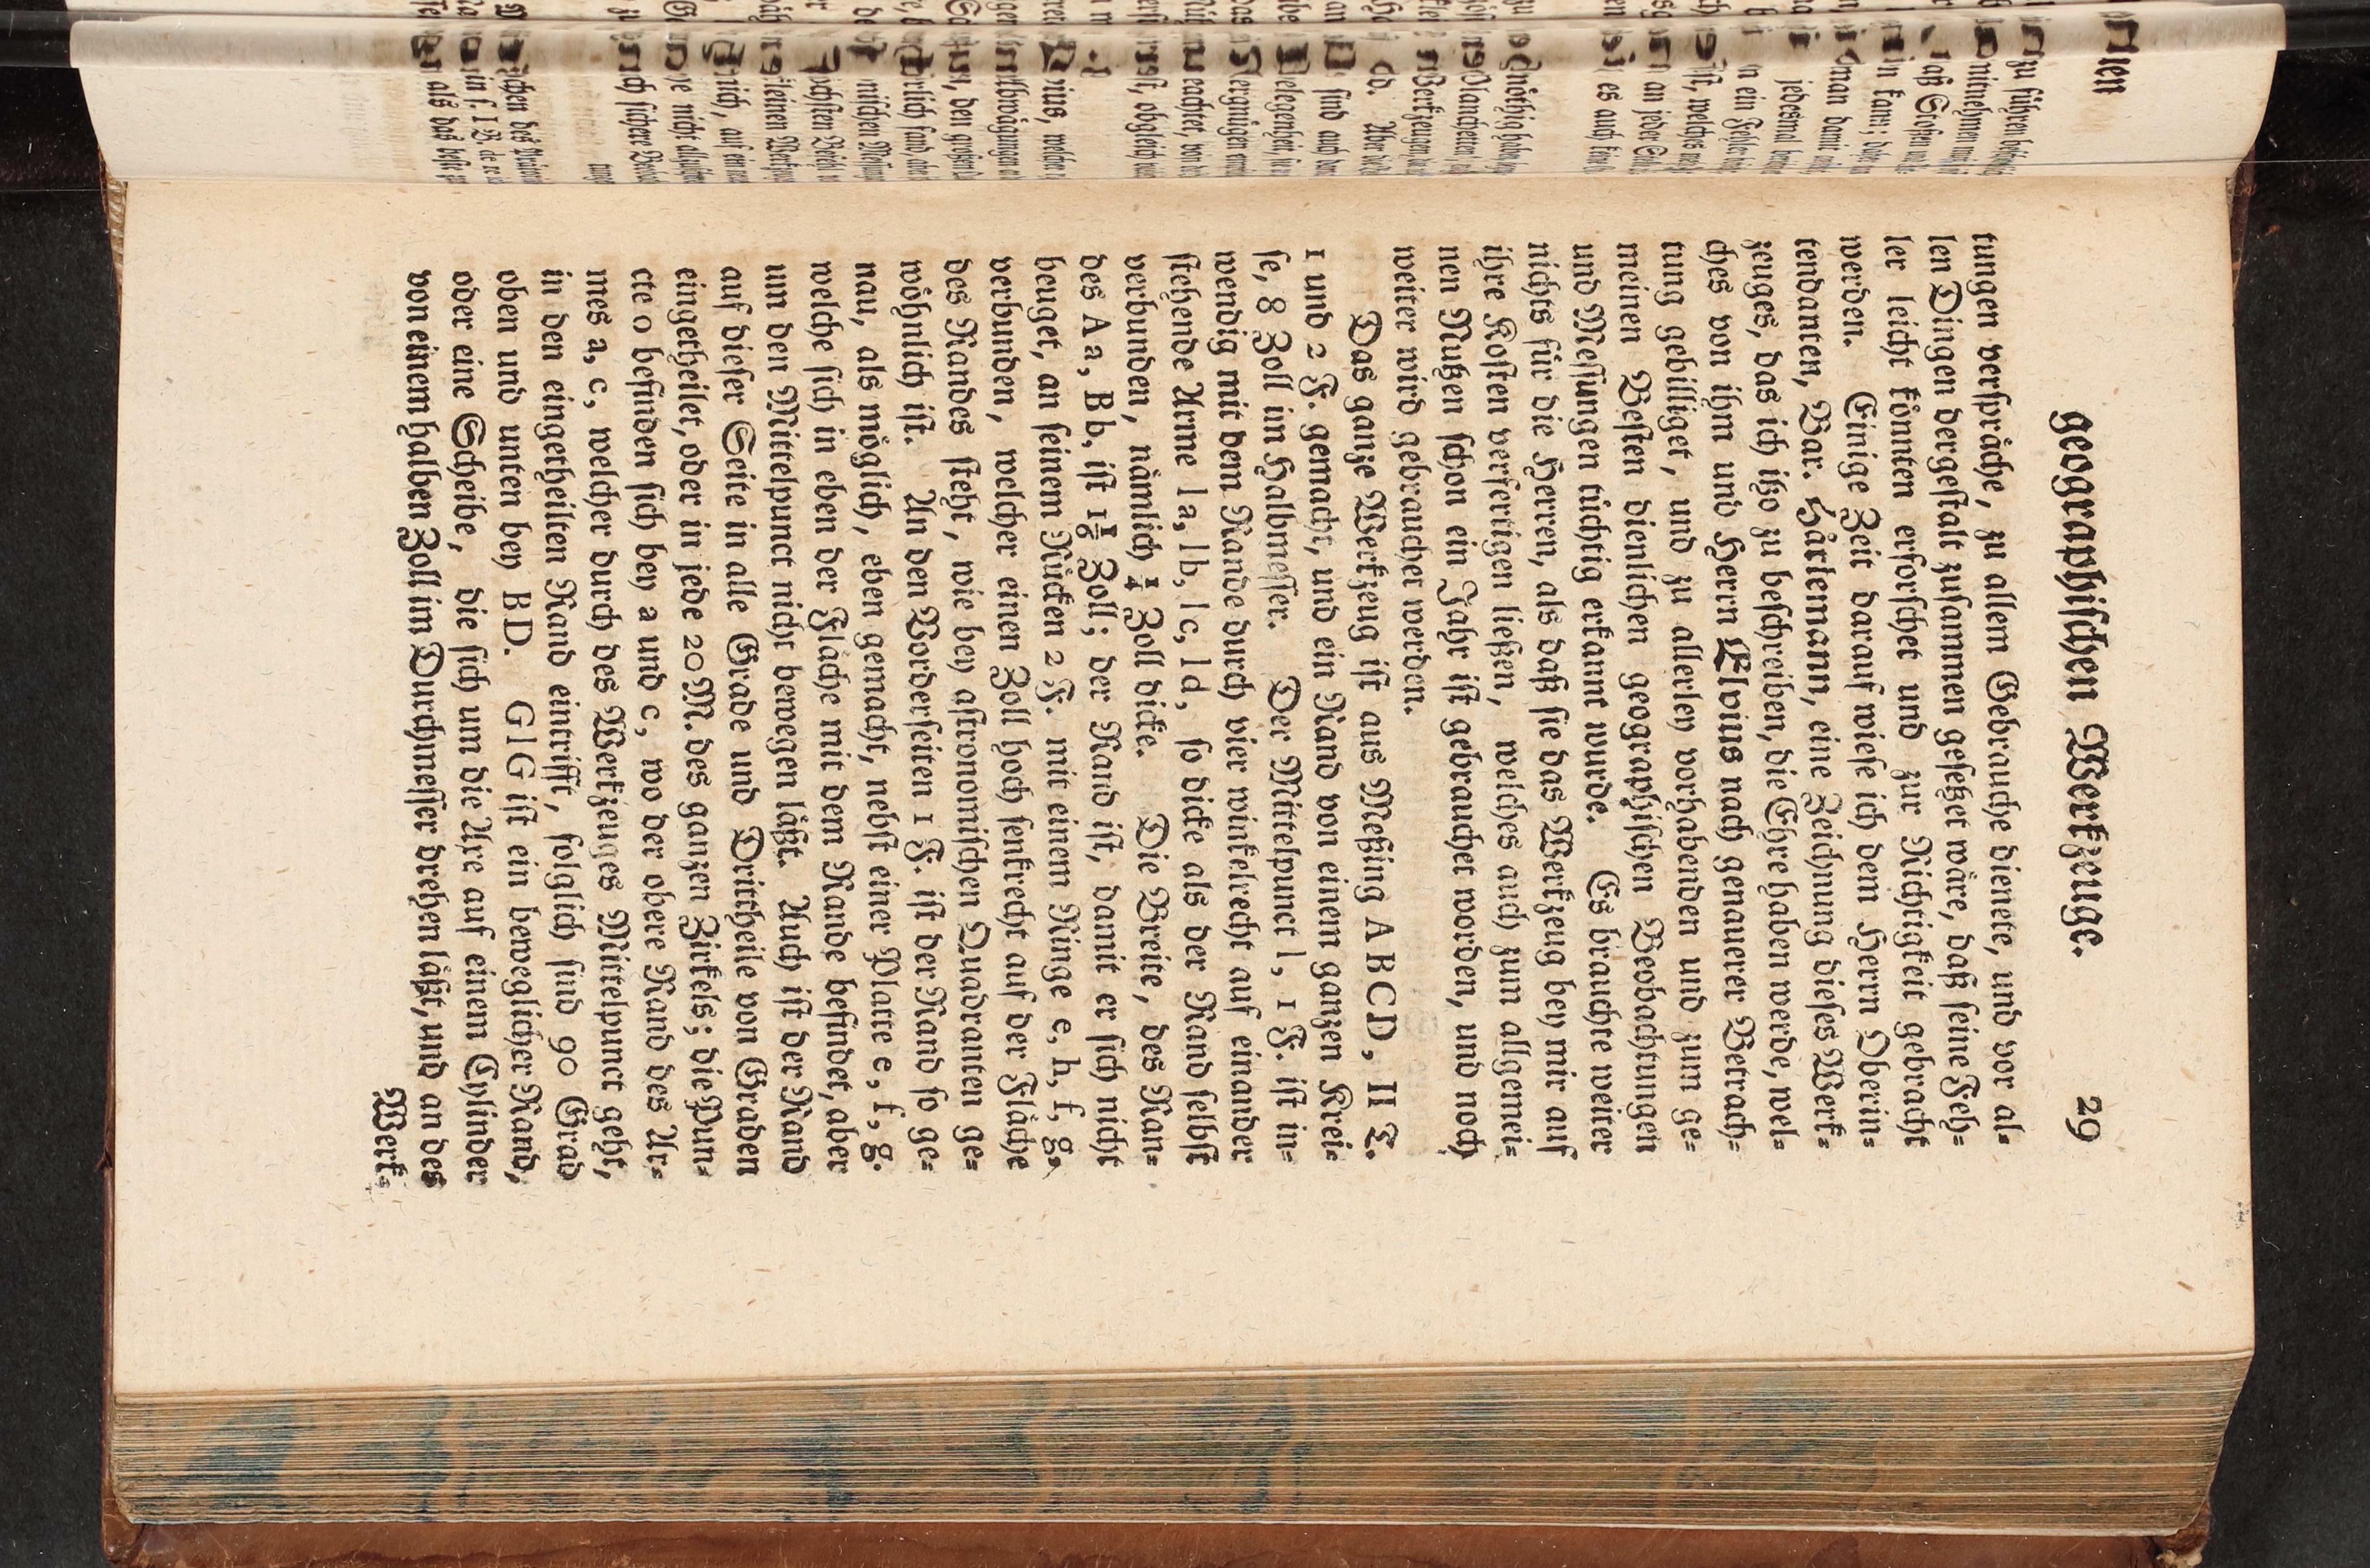 geographischen Werkzeuge. 29
tungen verspräche, zu allem Gebrauche dienete, und vor al=
len Dingen dergestalt zusammen gesetzet wäre, daß seine Feh=
ler leicht könnten erforschet und zur Richtigkeit gebracht
werden. Einige Zeit darauf wiese ich dem Herrn Oberin=
tendanten, Bar. Härlemann, eine Zeichnung dieses Werk=
zeuges, das ich itzo zu beschreiben, die Ehre haben werde, wel=
ches von ihm und Herrn Elvius nach genauerer Betrach=
tung gebilliget, und zu allerley vorhabenden und zum ge=
meinen Besten dienlichen geographischen Beobachtungen
und Messungen tüchtig erkannt wurde. Es brauchte weiter
nichts für die Herren, als daß sie das Werkzeug bey mir auf
ihre Kosten verfertigen ließen, welches auch zum allgemei=
nen Nutzen schon ein Jahr ist gebrauchet worden, und noch
weiter wird gebrauchet werden.
Das ganze Werkzeug ist aus Meßing A B C D, II T.
1 und 2 F. gemacht, und ein Rand von einem ganzen Krei=
se, 8 Zoll im Halbmesser. Der Mittelpunct l, 1 F. ist in=
wendig mit dem Rande durch vier winkelrecht auf einander
stehende Arme l a, l b, l c, l d, so dicke als der Rand selbst
verbunden, nämlich ¼ Zoll dicke. Die Breite, des Ran=
des A a, B b, ist 1⅙ Zoll; der Rand ist, damit er sich nicht
beuget, an seinem Rücken 2 F. mit einem Ringe e, h, f, g,
verbunden, welcher einen Zoll hoch senkrecht auf der Fläche
des Randes steht, wie bey astronomischen Quadranten ge=
wöhnlich ist. An den Vorderseiten 1 F. ist der Rand so ge=
nau, als möglich, eben gemacht, nebst einer Platte e, f, g.
welche sich in eben der Fläche mit dem Rande befindet, aber
um den Mittelpunct nicht bewegen läßt. Auch ist der Rand
auf dieser Seite in alle Grade und Drittheile von Graden
eingetheilet, oder in jede 20 M. des ganzen Zirkels; die Pun=
cte 0 befinden sich bey a und c, wo der obere Rand des Ar=
mes a, c, welcher durch des Werkzeuges Mittelpunct geht,
in den eingetheilten Rand eintrifft, folglich sind 90 Grad
oben und unten bey B D. G l G ist ein beweglicher Rand,
oder eine Scheibe, die sich um die Axe auf einem Cylinder
von einem halben Zoll im Durchmesser drehen läßt, und an des
Werk=